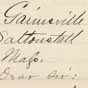 Gainsville
Saltonstall
Mass.
Dear Sir: